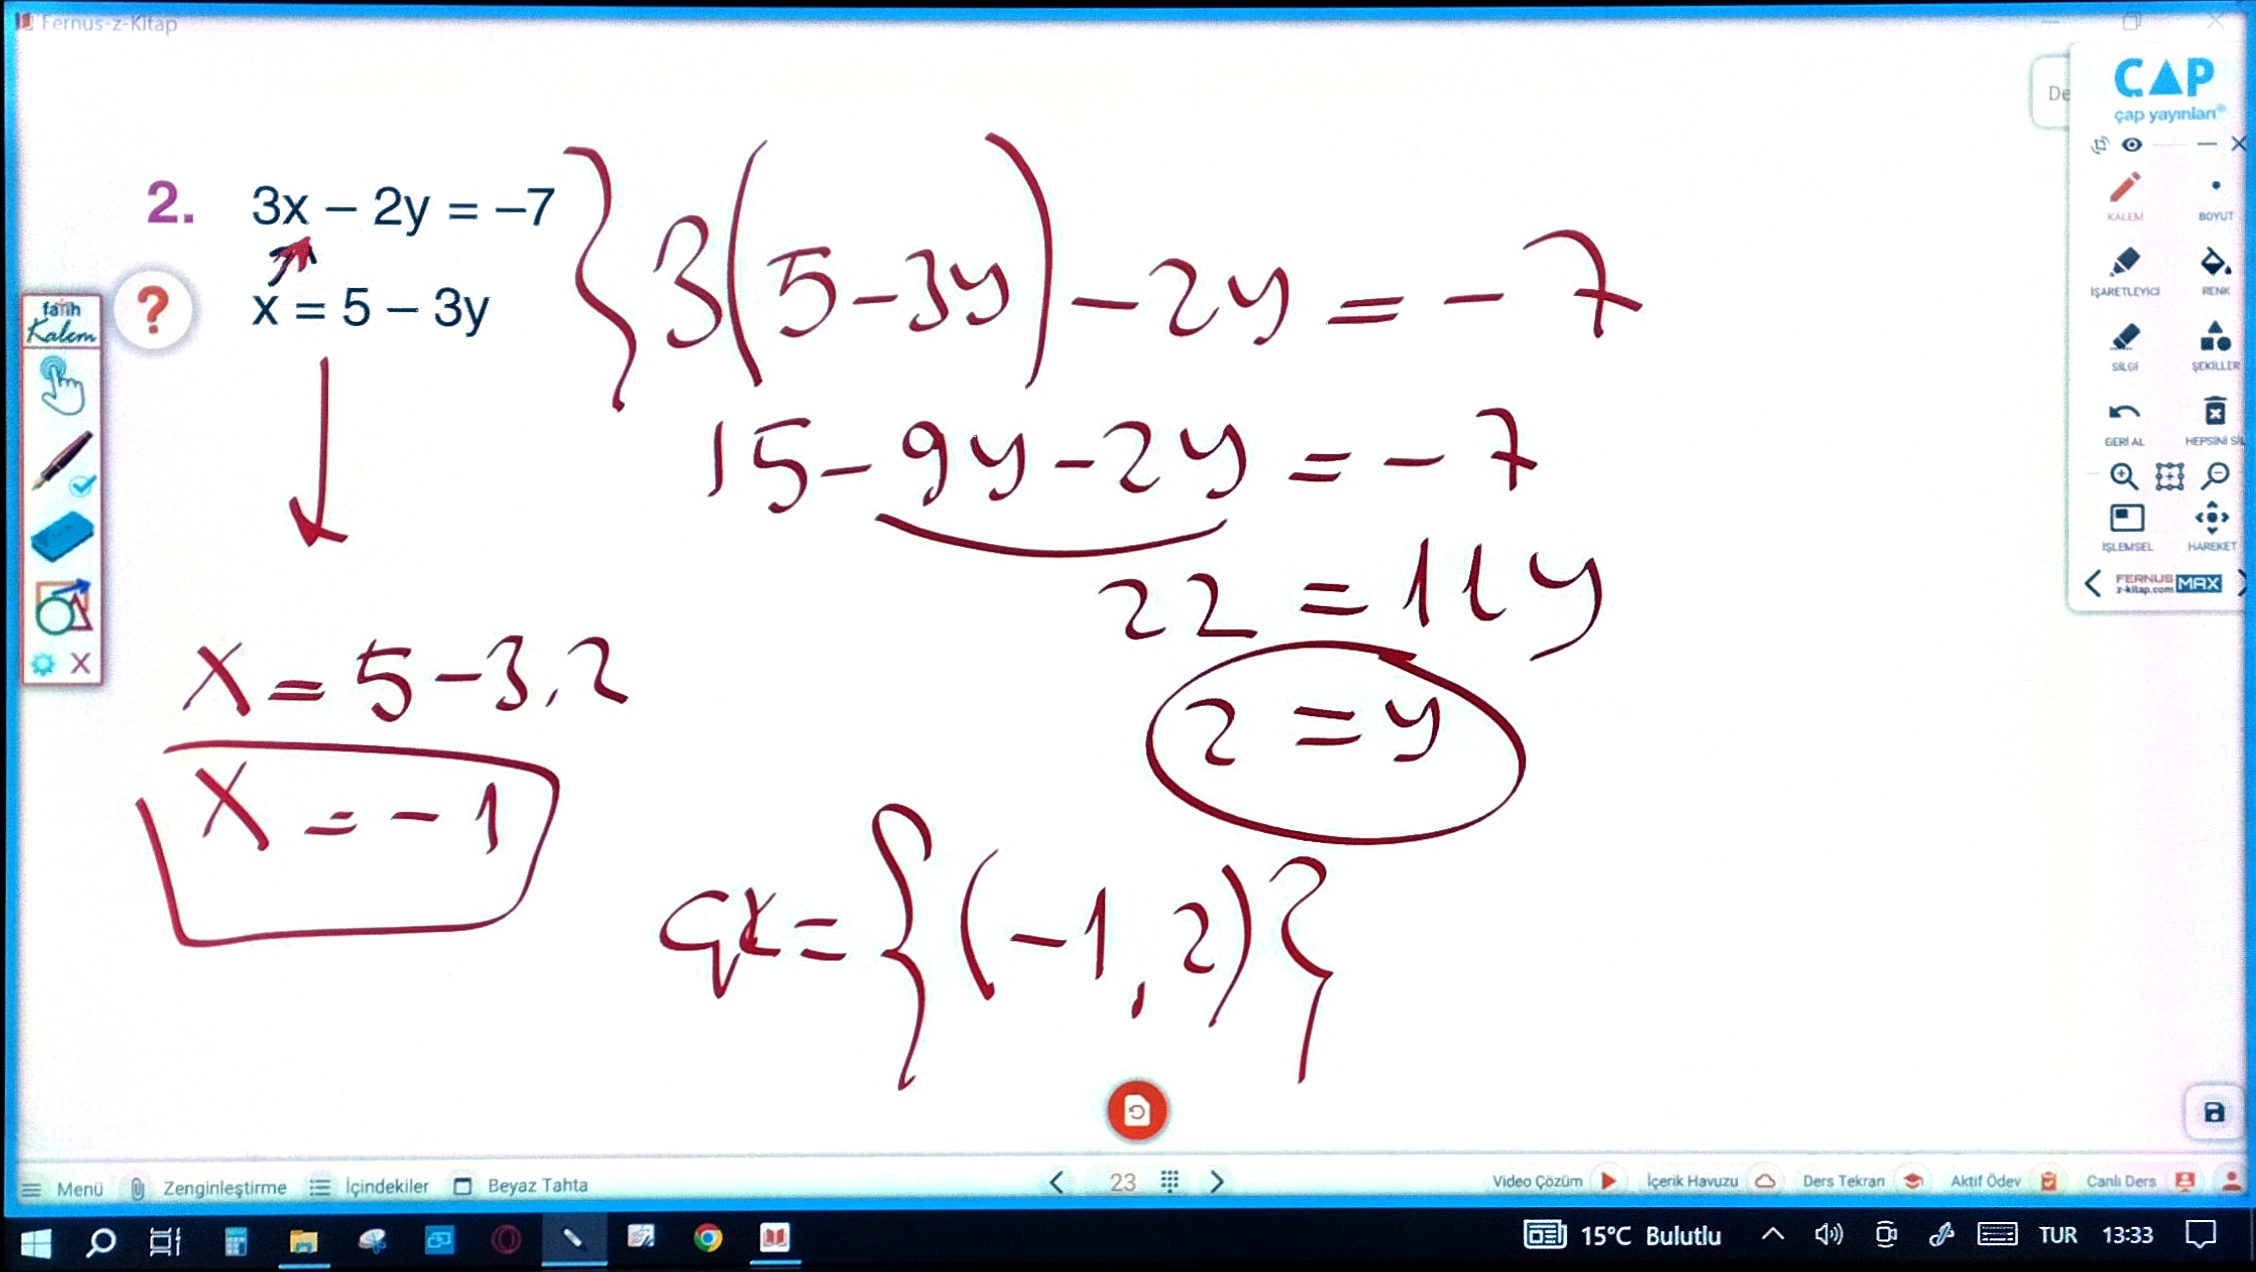 Fernus-z-Kitap
De
ÇAP
çap yayınları
2. 3x – 2y = –7
x = 5 – 3y
3(5-3y)-2y=-7
15-9y-2y=-7
22=11y
2=y
x=5-3.2
x=-1
ÇK={(-1,2)}
fatih
Kalem
KALEM
BOYUT
İŞARETLEYİCİ
RENK
SİLGİ
ŞEKİLLER
GERİ AL
HEPSİNİ Sİ
İŞLEMSEL
HAREKET
FERNUS
z-kitap.com
MAX
Menü
Zenginleştirme
İçindekiler
Beyaz Tahta
23
Video Çözüm
İçerik Havuzu
Ders Tekrarı
Aktif Ödev
Canlı Ders
15°C Bulutlu
TUR
13:33